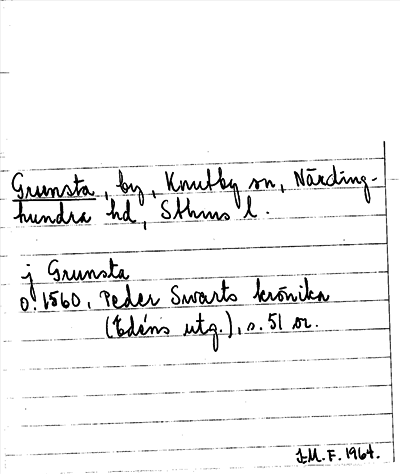 Grunsta, by, Knutby sn, Närding-
hundra hd, Sthms l.
j Grunsta
o. 1560, Peder Swarts krönika
(Edéns utg.), s. 51 or.
I.M.F. 1964.